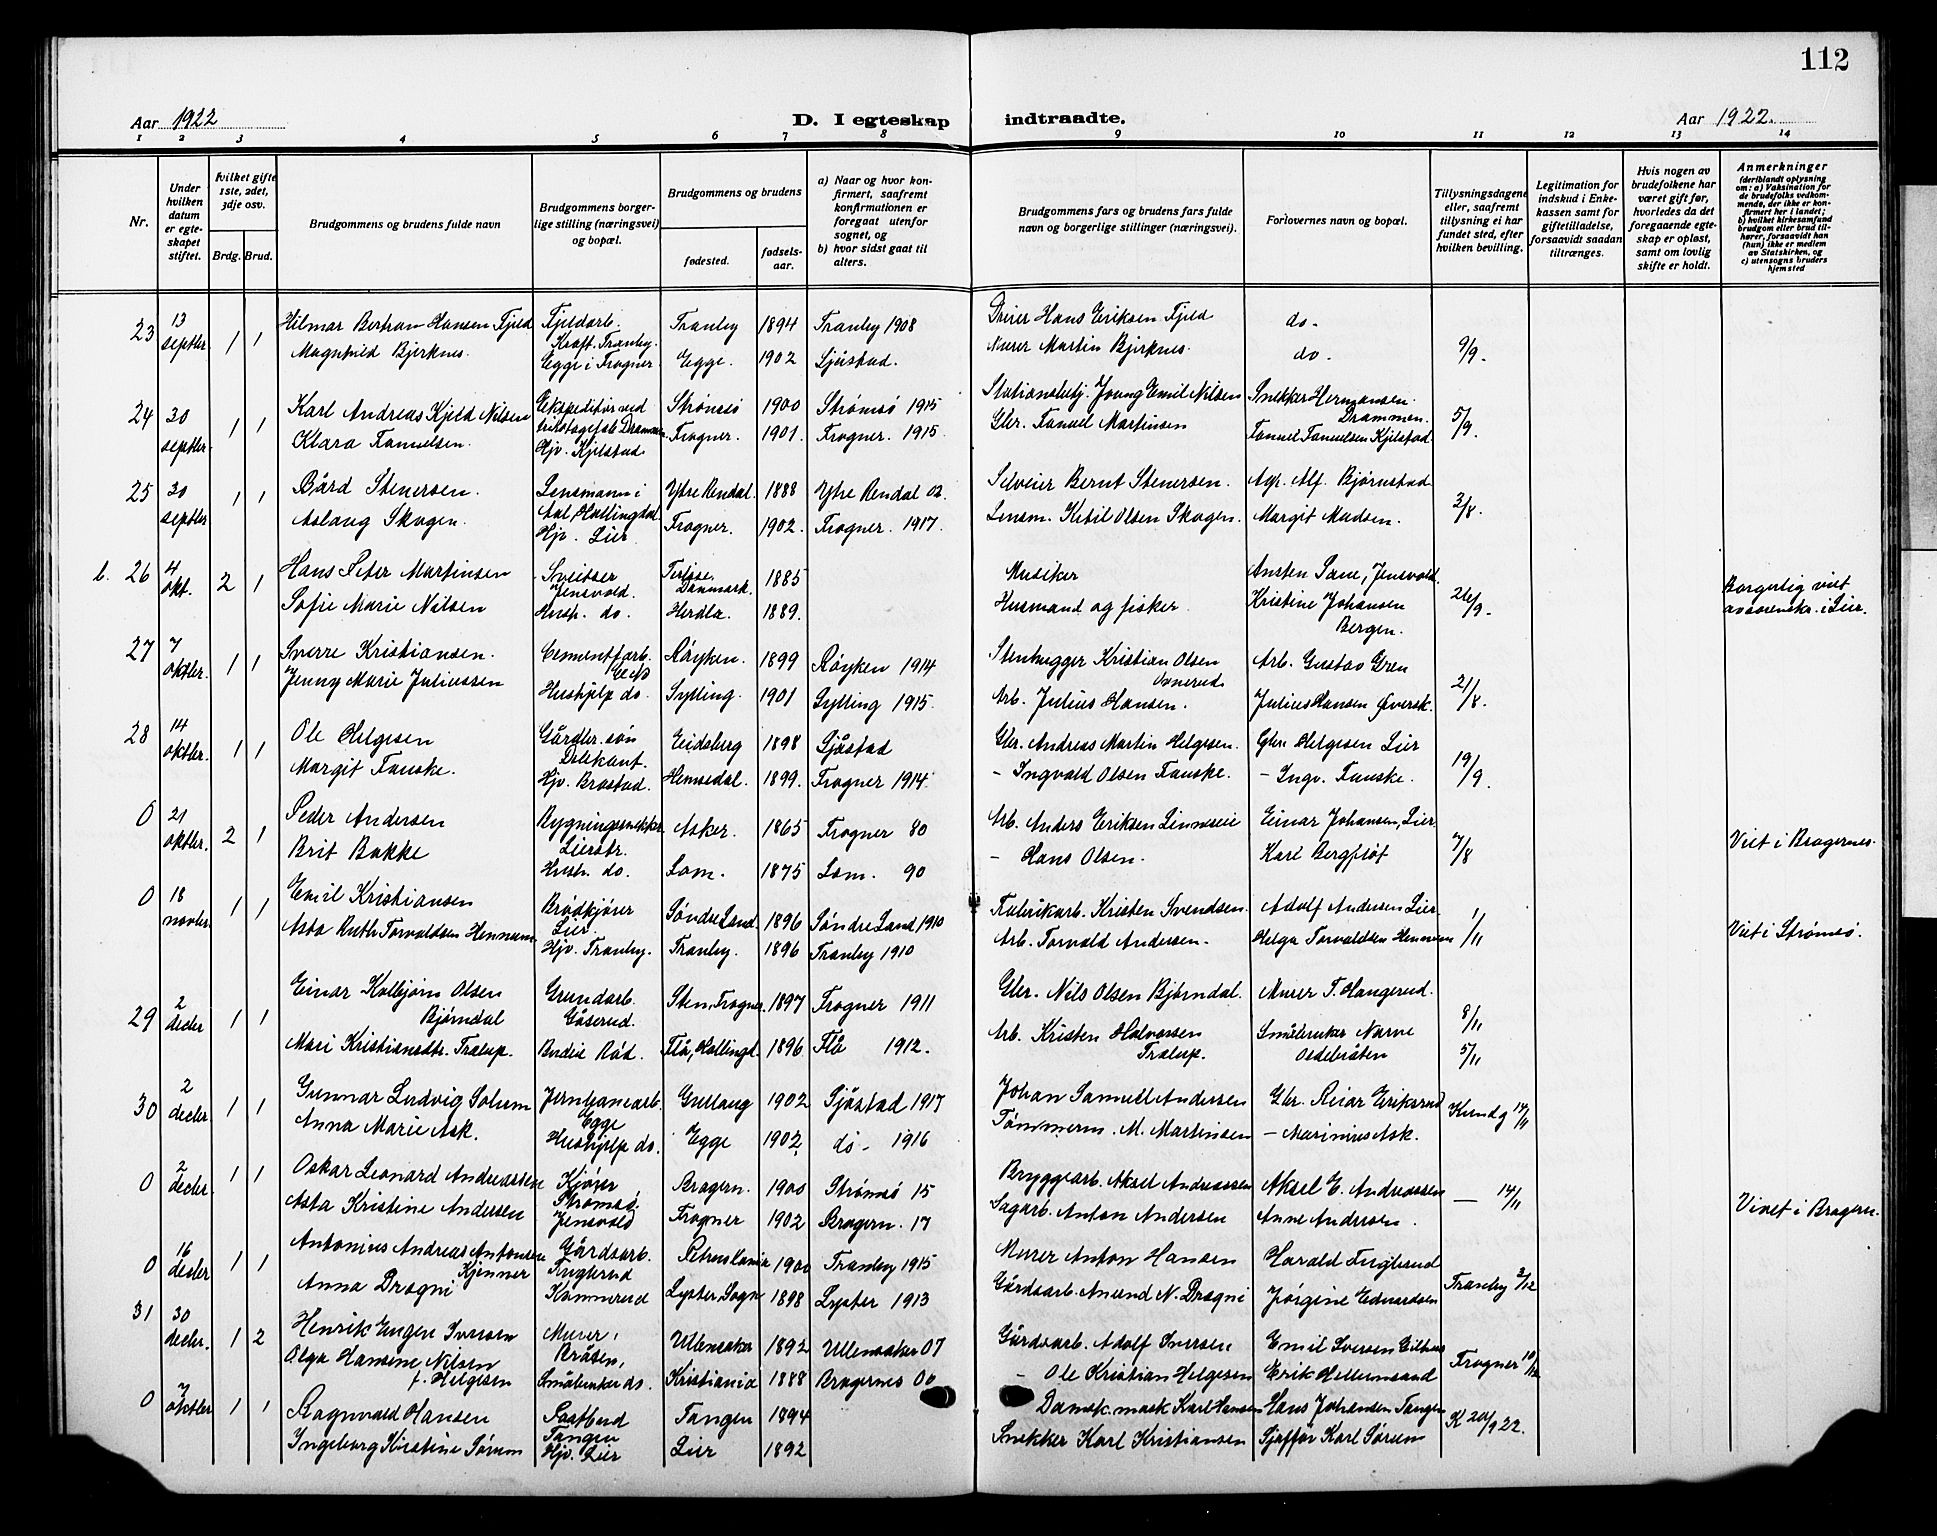 112
Aar 1922
D. I egteskap indtraadte.
Aar 1922.
1 2 3 4 5 6 7 8 9 10 11 12 13 14
Nr.
Under hvilken datum er egteskapet stiftet.
hvilket gifte 1ste, 2det, 3dje osv.
Brdg. Brud.
Brudgommens og brudens fulde navn
Brudgommens borgerlige stilling (næringsvei) og bopæl.
Brudgommens og brudens
fødested.
fødselsaar.
a) Naar og hvor konfirmert, saafremt konfirmationen er foregaat utenfor sognet, og
b) hvor sidst gaat til alters.
Brudgommens fars og brudens fars fulde navn og borgerlige stillinger (næringsvei).
Forlovernes navn og bopæl.
Tillysningsdagene eller, saafremt tillysning ei har fundet sted, efter hvilken bevilling.
Legitimation for indskud i Enkekassen samt for giftetilladelse, forsaavidt saadan tiltrænges.
Hvis nogen av brudefolkene har været gift før, hvorledes da det foregaaende egteskap er opløst, samt om lovlig skifte er holdt.
Anmerkninger
(deriblandt oplysning om: a) Vaksination for de brudefolks vedkommende, der ikke er konfirmert her i landet; b) hvilket kirkesamfund brudgom eller brud tilhører, forsaavidt han (hun) ikke er medlem av Statskirken, og c) utensogns bruders hjemsted
23 13 septbr. 1 1 Hilmar Bertran Hansen Fjeld Fjeldarb. Kraft. Tranby. Tranby 1894 Tranby 1908 Driver Hans Eriksen Fjeld do.
Magnhild Bjerknes. Egge i Frogner Egge. 1902 Sjåstad. Murer Martin Bjerknes. do. 9/9.
24 30 septbr. 1 1 Karl Andreas Kjeld Nilsen Ekspeditør ved Strømsø 1900 Strømsø 1915 Stationsbetj. Emil Nilsen Snekker Hermansen Drammen.
Klara Fanuelsen. Hjv. Kjelstad Frogner. 1901. Frogner. 1915. Gbr. Fanuel Martinsen Fanuel Fanuelsen Kjelstad. 5/9.
25 30 septbr 1 1 Bård Stenersen. Lensmann i Aal Hallingdal Ytre Rendal. 1888 Ytre Rendal 02. Selveier Bernt Stenersen. Agr. Alf. Bjørnstad
Aslaug Skogen. Hjv. Lier Frogner. 1902. Frogner. 1917. Lensm. Ketil Olsen Skogen. Margit Madsen. 3/8.
b. 26 4 okt. 2 1 Hans Peter Martinsen Sveitser Jensvold. Danmark. 1885 Musiker Jensvold.
Sofie Marie Nilsen Husp. do. Herdla 1889. Husmand og fisker. Kristine Johansen Bergen. 26/9. Borgerlig viet av sorenskr. i Lier.
27 7 oktbr. 1 1 Sverre Kristiansen. Cementfarb. Røyken. 1899 Røyken 1914 Stenhugger Kristian Olsen Arb. Gustav Gren
Jenny Marie Juliussen Hushjelp do. Sylling. 1901 Sylling 1915. Arb. Julius Hansen. Julius Hansen Øversk. 21/8.
28 14 oktbr. 1 1 Ole Helgesen Gårdbr. søn Eidsberg 1898 Sjåstad Gbr. Andreas Martin Helgesen. Gbr. Helgesen Lier
Margit Fauske. Hjv. Brastad. Hemsedal. 1899. Frogner 1914. - Ingvald Olsen Fauske. - Ingv. Fauske. 19/9.
0 21 oktbr. 2 1 Peder Andersen Bygningssnekker Lierstr. Asker. 1865 Frogner 80 Arb. Anders Eriksen Linneseie Einar Johansen, Lier.
Brit Bakke Hush. do. Lom. 1875 Lom. 90 - Hans Olsen. Karl Bergfløt 7/8 Viet i Bragernes.
0 18 novbr. 1 1 Emil Kristiansen Brødkjører Lier. Søndre Land. 1896 Søndre Land 1910 Fabrikarb. Kristen Svendsen. Adolf Andersen Lier.
Asta Ruth Torvaldsen Hennum Hjv. Tranby. Tranby. 1896 Tranby 1910 Arb. Torvald Andersen. Helga Torvaldsen Hennum 1/11 Viet i Strømsø.
29 2 decbr 1 1 Einar Kolbjørn Olsen Bjørndal Grundarb. Gåserud. Sten, Frogner. 1897 Frogner 1911 Gbr. Nils Olsen Bjørndal. Murer T. Haugerud. 8/11
Mari Kristiansdtr. Trælup. Budeie Rød. Flå, Hallingd. 1896 Flå 1912. Arb. Kristen Halvorsen Trælup. Småbruker Narve 5/11
30 2 decbr. 1 1 Gunnar Ludvig Solum Jernbanearb. Egge Gullaug 1902 Sjåstad 1917 Johan Samuel Andersen Gbr. Reiar Eriksrud
Anna Marie Ask. Hushjelp do. Egge 1902. do. 1916 Tømmerm. M. Martinsen - Marinius Ask. Kundg 14/11
0 2 decbr. 1 1 Oskar Leonard Andreassen Kjører Strømsø. Bragern. 1900 Strømsø 15 Bryggearb. Aksel Andreassen Aksel E. Andreassen
Asta Kristine Andersen Jensvold Frogner 1902 Bragern. 17 Sagarb. Anton Andersen Anne Andersen. - 14/11 Viet i Bragern.
0 16 decbr 1 1 Antonius Andreas Antonsen Kjenner Gårdsarb. Fuglerud Petruslania 1900 Tranby 1915 Murer Anton Hansen Harald Fuglerud
Anna Drægni Kammerud Lyster, Sogn 1898 Lyster 1913 Gårdarb. Amund N. Drægni Jørgine Edvardsen Tranby 3/12
31 30 decbr. 1 2 Henrik Eugen Iversen Murer, Bråsen, Ullensaker 1892 Ullensaker 07 Gårdsarb. Adolf Iversen Emil Iversen
Olga Hansine Nilsen f. Helgesen Småbruker do. Kristiania 1888 Bragernes 00 - Ole Kristian Helgesen Erik Hellumsand Frogner 10/12
0 7 oktbr 1 1 Ragnvald Hansen Tangen Tangen 1894 Dampsk. mask Karl Hansen Hans Johansen Tangen
Ingeborg Kirstine Sørum Hjv. Lier Lier 1892 Snekker Karl Kristiansen Sjåffør Karl Sørum K 20/9 22.